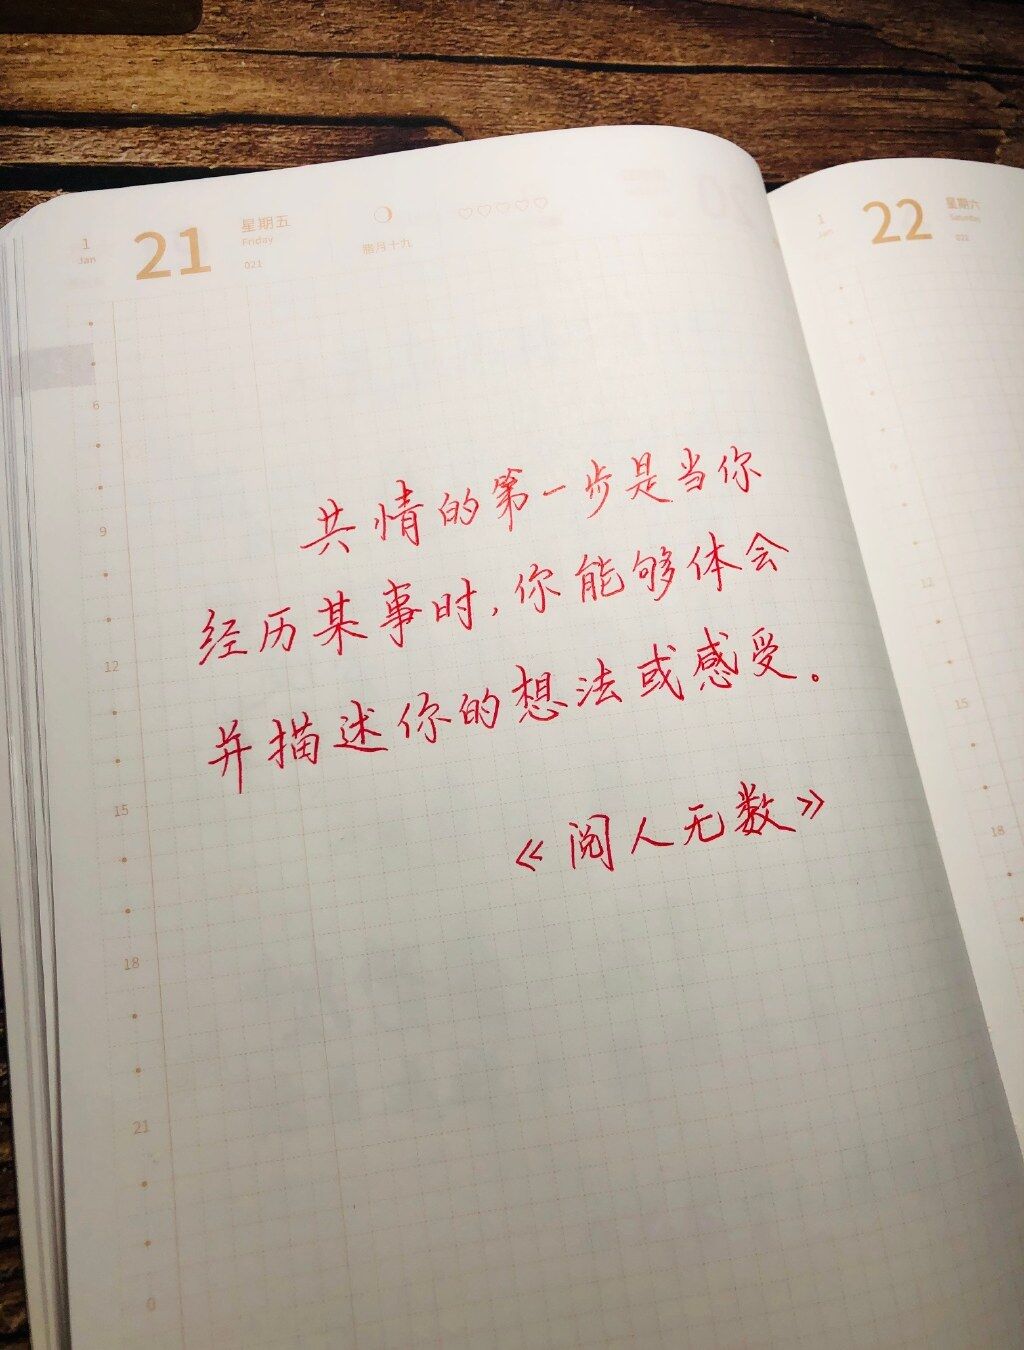 1
Jan
21
星期五
Friday
021
腊月十九
6
9
12
15
18
21
0
共情的第一步是当你
经历某事时,你能够体会
并描述你的想法或感受。
《阅人无数》
1
22
星期六
Saturday
022
12
15
18